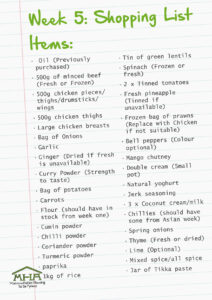 Week 5: Shopping List
Items:
· Oil (Previously
purchased)
· 500g of minced beef
(Fresh or Frozen)
· 500g chicken pieces/
thighs/drumsticks/
wings
· 500g chicken thighs
· Large chicken breasts
· Bag of Onions
· Garlic
· Ginger (Dried if fresh
is unavailable)
· Curry Powder (Strength
to taste)
· Bag of potatoes
· Carrots
· Flour (should have in
stock from week one)
· Cumin powder
· Chilli powder
· Coriander powder
· Turmeric powder
· paprika
1kg of rice
· Tin of green lentils
· Spinach (Frozen or
fresh)
· 2 x tinned tomatoes
· Fresh pineapple
(Tinned if
unavailable)
· Frozen bag of prawns
(Replace with Chicken
if not suitable)
· Bell peppers (Colour
optional)
· Mango chutney
· Double cream (Small
pot)
· Natural yoghurt
· Jerk seasoning
· 3 x Coconut cream/milk
· Chillies (should have
some from Asian week)
· Spring onions
· Thyme (Fresh or dried)
· Lime (Optional)
· Mixed spice/all spice
· Jar of Tikka paste
MHA